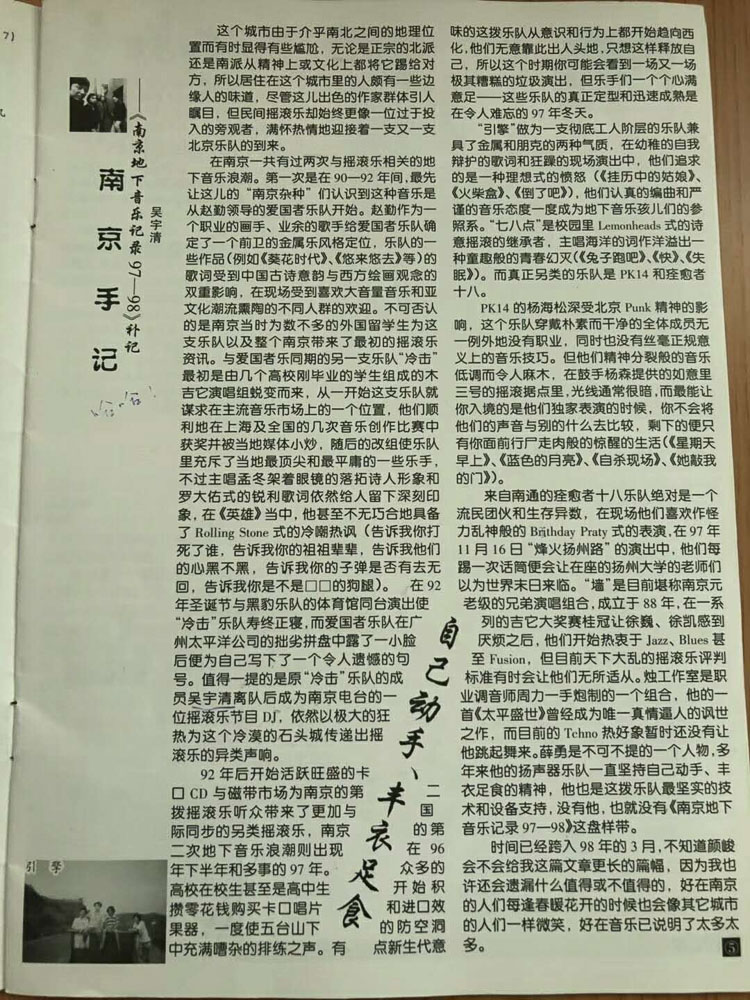 南京手记
——《南京地下音乐记录97—98》补记
吴宇清
这个城市由于介乎南北之间的地理位
置而有时显得有些尴尬，无论是正宗的北派
还是南派从精神上或文化上都将它踢给对
方，所以居住在这个城市里的人颇有一些边
缘人的味道，尽管这儿出色的作家群体引人
瞩目，但民间摇滚乐却始终更像一位过于投
入的旁观者，满怀热情地迎接着一支又一支
北京乐队的到来。
在南京一共有过两次与摇滚乐相关的地
下音乐浪潮。第一次是在90—92年间，最先
让这儿的“南京杂种”们认识到这种音乐是
从赵勤领导的爱国者乐队开始。赵勤作为一
个职业的画手、业余的歌手给爱国者乐队确
定了一个前卫的金属乐风格定位，乐队的一
些作品(例如《葵花时代》、《悠来悠去》等)的
歌词受到中国古诗意韵与西方绘画观念的
双重影响，在现场受到喜欢大音量音乐和亚
文化潮流熏陶的不同人群的欢迎。不可否认
的是南京当时为数不多的外国留学生为这
支乐队以及整个南京带来了最初的摇滚乐
资讯。与爱国者乐同期的另一支乐队“冷击”
最初是由几个高校刚毕业的学生组成的木
吉它演唱组蜕变而来，从一开始这支乐队就
谋求在主流音乐市场上的一个位置，他们顺
利地在上海及全国的几次音乐创作比赛中
获奖并被当地媒体小炒，随后的改组使乐队
里充斥了当地最顶尖和最平庸的一些乐手，
不过主唱孟冬架着眼镜的落拓诗人形象和
罗大佑式的锐利歌词依然给人留下深刻印
象，在《英雄》当中，他甚至不无巧合地具备
了 Rolling Stone 式的冷嘲热讽（告诉我你打
死了谁，告诉我你的祖祖辈辈，告诉我他们
的心黑不黑，告诉我你的子弹是否有去无
回，告诉我你是不是□□的狗腿）。 在92
年圣诞节与黑豹乐队的体育馆同台演出使
“冷击”乐队寿终正寝，而爱国者乐队在广
州太平洋公司的拙劣拼盘中露了一小脸
后便为自己写下了一个令人遗憾的句
号。值得一提的是原“冷击”乐队的成
员吴宇清离队后成为南京电台的一
位摇滚乐节目DJ，依然以极大的狂
热为这个冷漠的石头城传递出摇
滚乐的异类声响。
92年后开始活跃旺盛的卡
口CD与磁带市场为南京的第二
拨摇滚乐听众带来了更加与国
际同步的另类摇滚乐，南京的第
二次地下音乐浪潮则出现在96
年下半年和多事的97年。众多的
高校在校生甚至是高中生开始积
攒零花钱购买卡口唱片和进口效
果器，一度使五台山下的防空洞
中充满嘈杂的排练之声。有点新生代意
自己动手、丰衣足食
引擎
味的这拨乐队从意识和行为上都开始趋向西
化，他们无意靠此出人头地，只想这样释放自
己，所以这个时期你可能会看到一场又一场
极其糟糕的垃圾演出，但乐手们一个个心满
意足——这些乐队的真正定型和迅速成熟是
在令人难忘的97年冬天。
“引擎”做为一支彻底工人阶层的乐队兼
具了金属和朋克的两种气质，在幼稚的自我
辩护的歌词和狂躁的现场演出中，他们追求
的是一种理想式的愤怒（《挂历中的姑娘》、
《火柴盒》、《倒了吧》），他们认真的编曲和严
谨的音乐态度一度成为地下音乐孩儿们的参
照系。“七八点”是校园里Lemonheads式的诗
意摇滚的继承者，主唱海洋的词作洋溢出一
种童趣般的青春幻灭（《兔子跑吧》、《快》、《失
眠》）。而真正另类的乐队是PK14和痊愈者
十八。
PK14的杨海松深受北京Punk精神的影
响，这个乐队穿戴朴素而干净的全体成员无
一例外地没有职业，同时也没有丝毫正规意
义上的音乐技巧。但他们精神分裂般的音乐
低调而令人麻木，在鼓手杨森提供的如意里
三号的摇滚据点里，光线通常很暗，而最能让
你入境的是他们独家表演的时候，你不会将
他们的声音与别的什么去比较，剩下的便只
有你面前行尸走肉般的惊醒的生活（《星期天
早上》、《蓝色的月亮》、《自杀现场》、《她敲我
的门》）。
来自南通的痊愈者十八乐队绝对是一个
流民团伙和生存异数，在现场他们喜欢作怪
力乱神般的Brithday Praty式的表演，在97年
11月16日“烽火扬州路”的演出中，他们每
踢一次话筒便会让在座的扬州大学的老师们
以为世界末日来临。“墙”是目前堪称南京元
老级的兄弟演唱组合，成立于88年，在一系
列的吉它大奖赛桂冠让徐巍、徐凯感到
厌烦之后，他们开始热衷于Jazz、Blues甚
至Fusion，但目前天下大乱的摇滚乐评判
标准有时会让他们无所适从。烛工作室是职
业调音师周力一手炮制的一个组合，他的一
首《太平盛世》曾经成为唯一真情逼人的讽世
之作，而目前的Tchno热好象暂时还没有让
他跳起舞来。薛勇是不可不提的一个人物，多
年来他的扬声器乐队一直坚持自己动手、丰
衣足食的精神，他也是这拨乐队最坚实的技
术和设备支持，没有他，也就没有《南京地下
音乐记录97—98》这盘样带。
时间已经跨入98年的3月，不知道颜峻
会不会给我这篇文章更长的篇幅，因为我也
许还会遗漏什么值得或不值得的，好在南京
的人们每逢春暖花开的时候也会像其它城市
的人们一样微笑，好在音乐已说明了太多太
多。
5